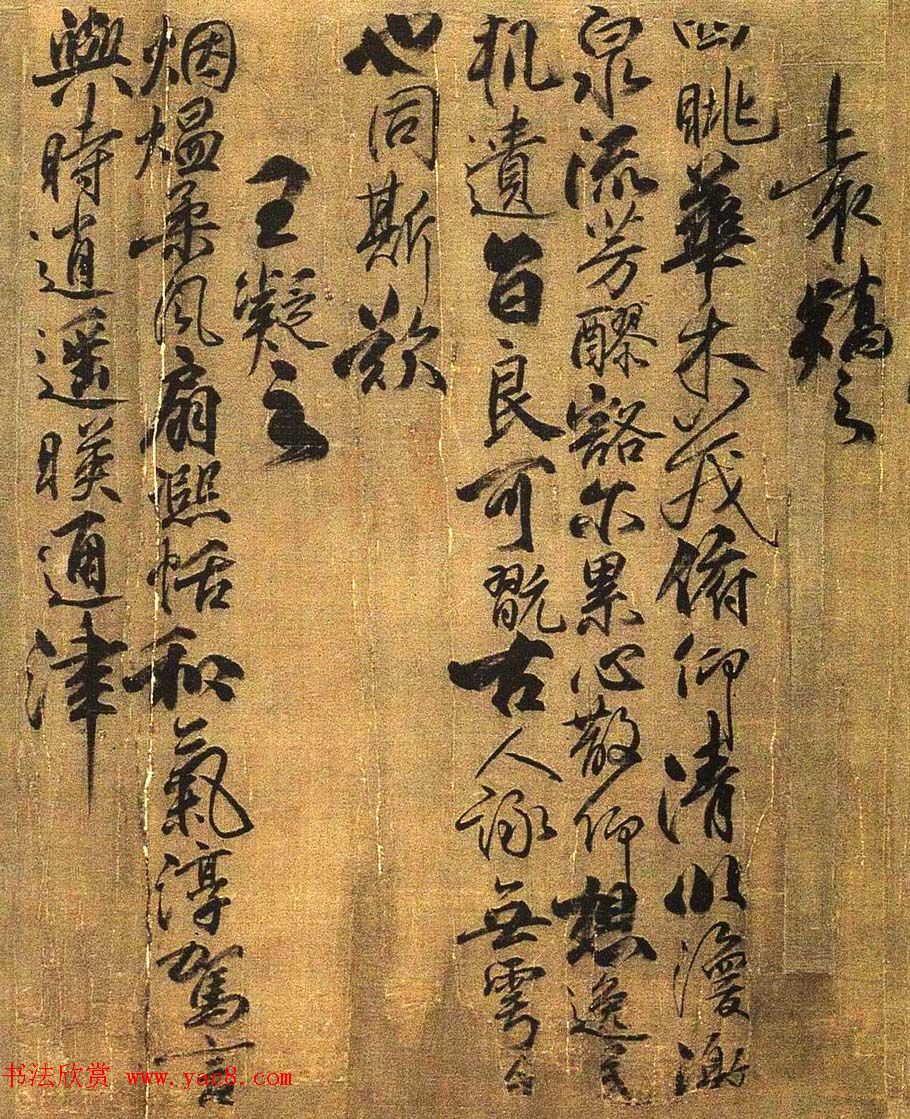 袁矯之
四眺華木茂俯仰清川渙激
泉流芳醪豁尔累心散仰想逸民
机遺旨良可翫古人詠無雩今
也同斯歎
王凝之
烟熅柔風扇熙恬和氣淳駕言
興時逍遥暎通津
书法欣赏 www.yac8.com